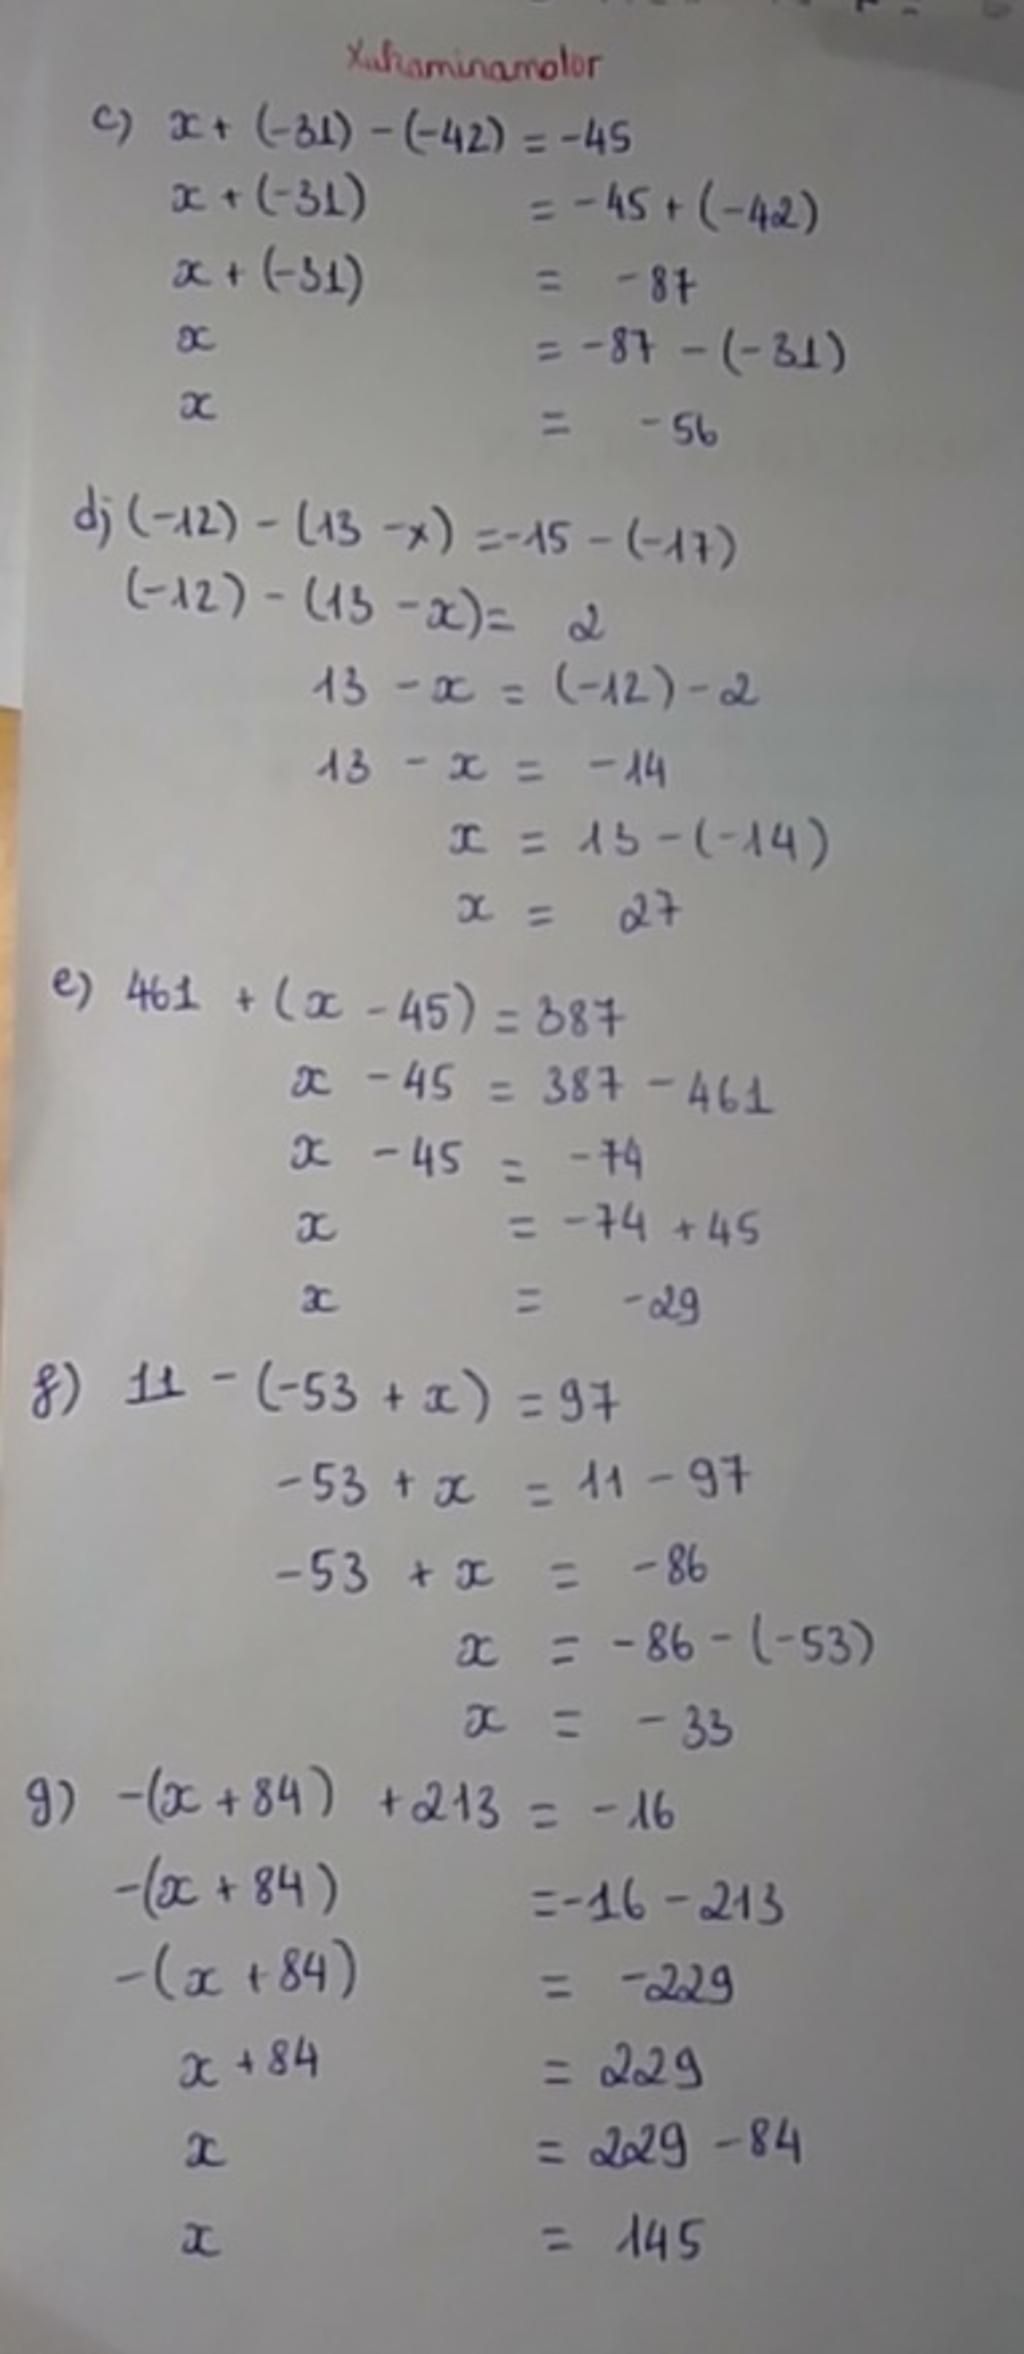 Xukaminamolor
c) x + (-31) - (-42) = -45
x + (-31) = -45 + (-42)
x + (-31) = -87
x = -87 - (-31)
x = -56
d) (-12) - (13 - x) = -15 - (-17)
(-12) - (13 - x) = 2
13 - x = (-12) - 2
13 - x = -14
x = 13 - (-14)
x = 27
e) 461 + (x - 45) = 387
x - 45 = 387 - 461
x - 45 = -74
x = -74 + 45
x = -29
f) 11 - (-53 + x) = 97
-53 + x = 11 - 97
-53 + x = -86
x = -86 - (-53)
x = -33
g) -(x + 84) + 213 = -16
-(x + 84) = -16 - 213
-(x + 84) = -229
x + 84 = 229
x = 229 - 84
x = 145